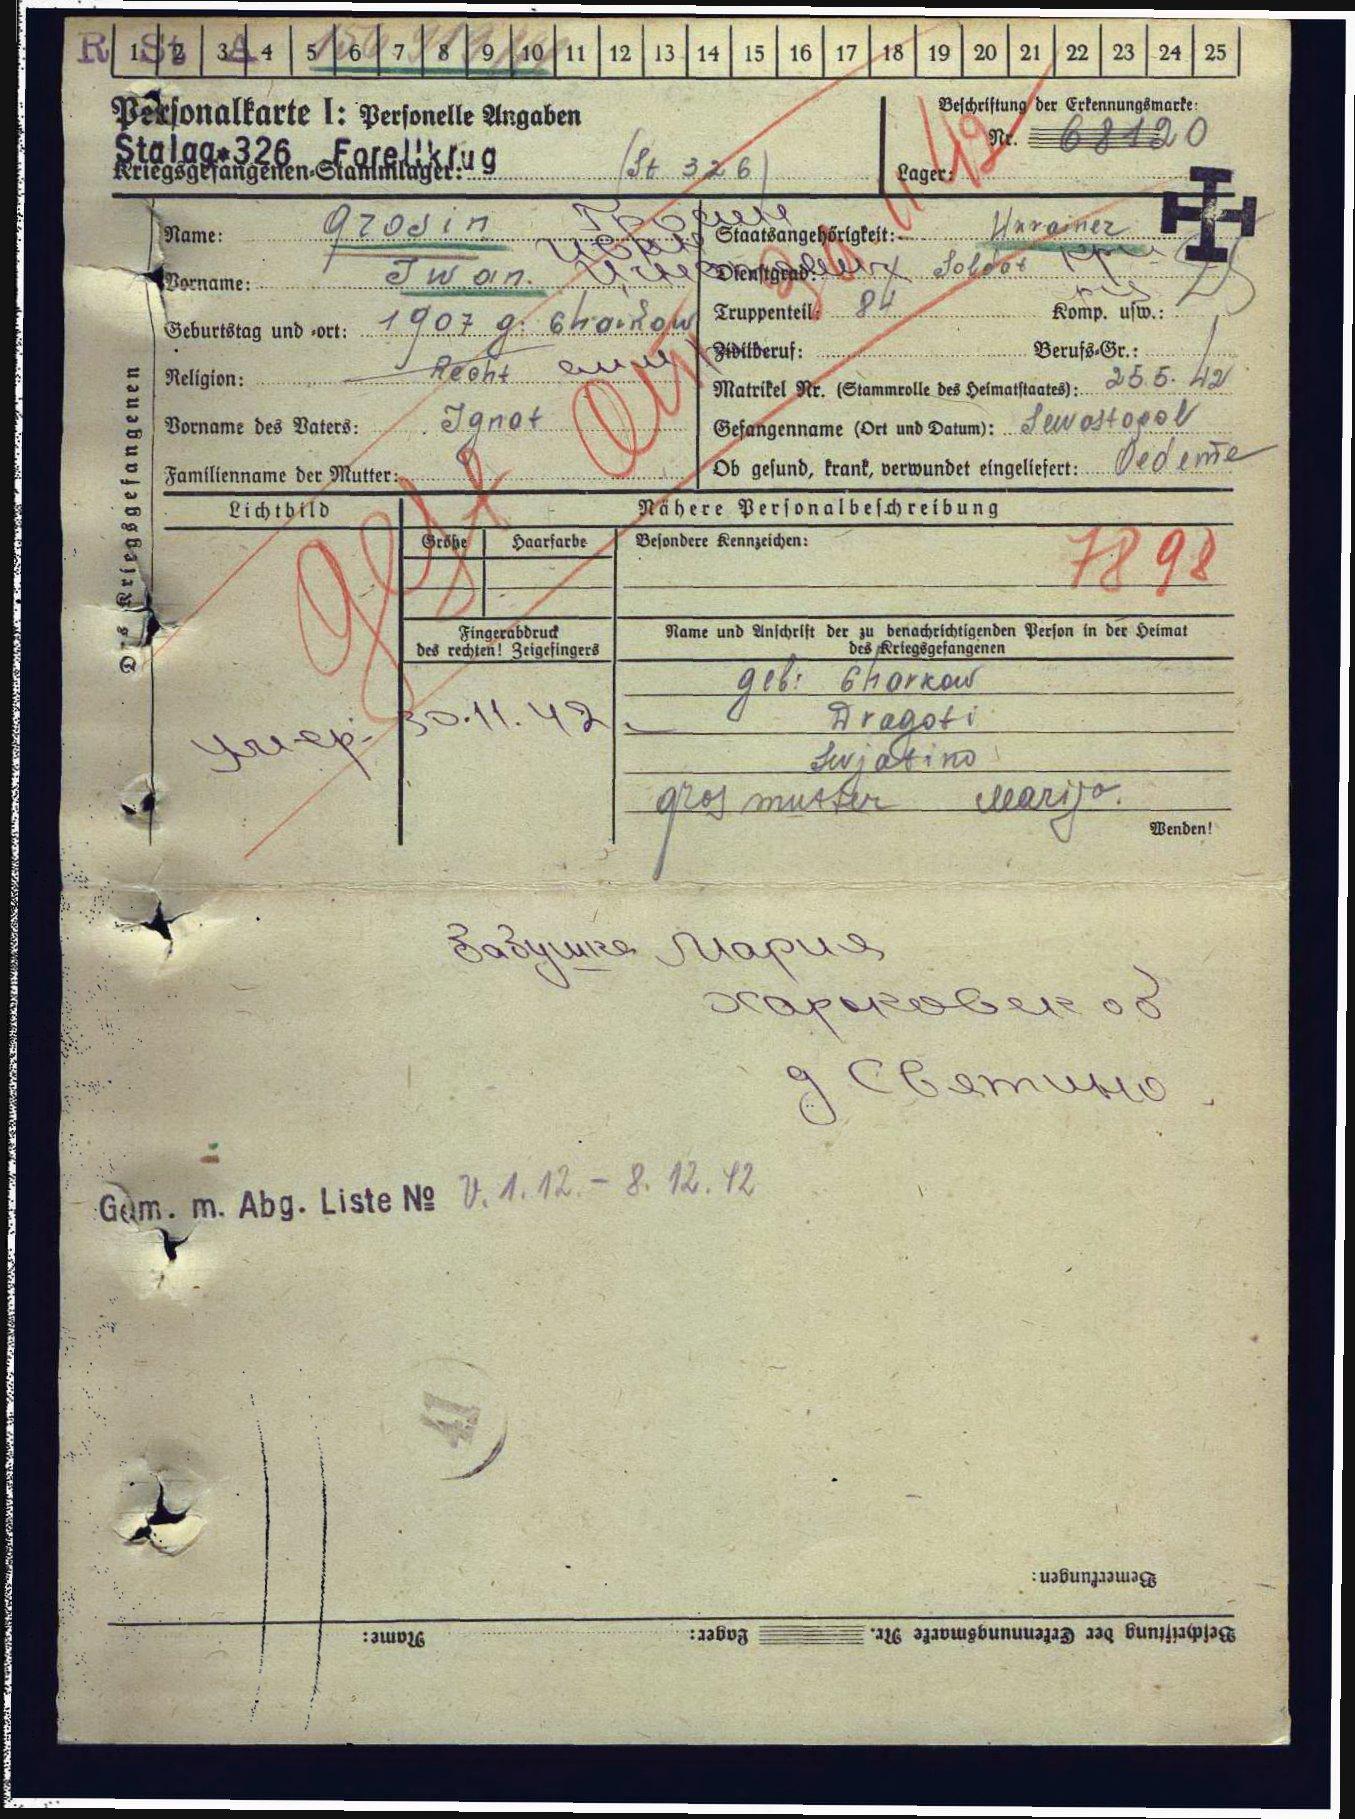 R St A
1 2 3 4 5 6 7 8 9 10 11 12 13 14 15 16 17 18 19 20 21 22 23 24 25
Personalkarte I: Personelle Angaben
Beschriftung der Erkennungsmarke:
Nr. 68120
Stalag 326 Forellkrug
Kriegsgefangenen-Stammlager: (St 326)
Lager:
Des Kriegsgefangenen
Name: Grosin Грозин
Vorname: Iwan. Иван
Geburtstag und -ort: 1907 g. Charkow
Religion: Recht
Vorname des Vaters: Ignat
Familienname der Mutter:
Staatsangehörigkeit: Ukrainer
Dienstgrad: Soldat
Truppenteil: 84 Komp. usw.:
Zivilberuf: Berufs-Gr.:
Matrikel Nr. (Stammrolle des Heimatstaates): 25.5.42
Gefangennahme (Ort und Datum): Sewastopol
Ob gesund, krank, verwundet eingeliefert:
gest am 30.11.42
Lichtbild
Nähere Personalbeschreibung
Größe Haarfarbe Besondere Kennzeichen:
7898
Fingerabdruck
des rechten! Zeigefingers
Name und Anschrift der zu benachrichtigenden Person in der Heimat
des Kriegsgefangenen
geb: Charkow
Dragoti
Swjatino
grosmutter Marija.
умер. 30.11.42
Wenden!
Бабушка Мария
Харьковск об
д Святино
Gem. m. Abg. Liste № V. 1.12. - 8.12.42
41
Bemerkungen:
Beschriftung der Erkennungsmarke Nr. Lager: Name: